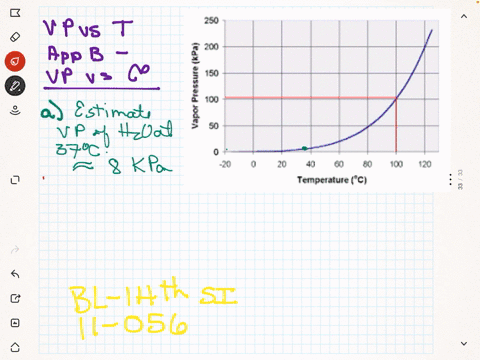 VP vs T
App B –
VP vs C°
a) Estimate
VP of H₂O at
37°C.
≈ 8 KPa
250
200
150
100
50
0
Vapor Pressure (kPa)
-20 0 20 40 60 80 100 120
Temperature (°C)
BL-14th SI
11-056